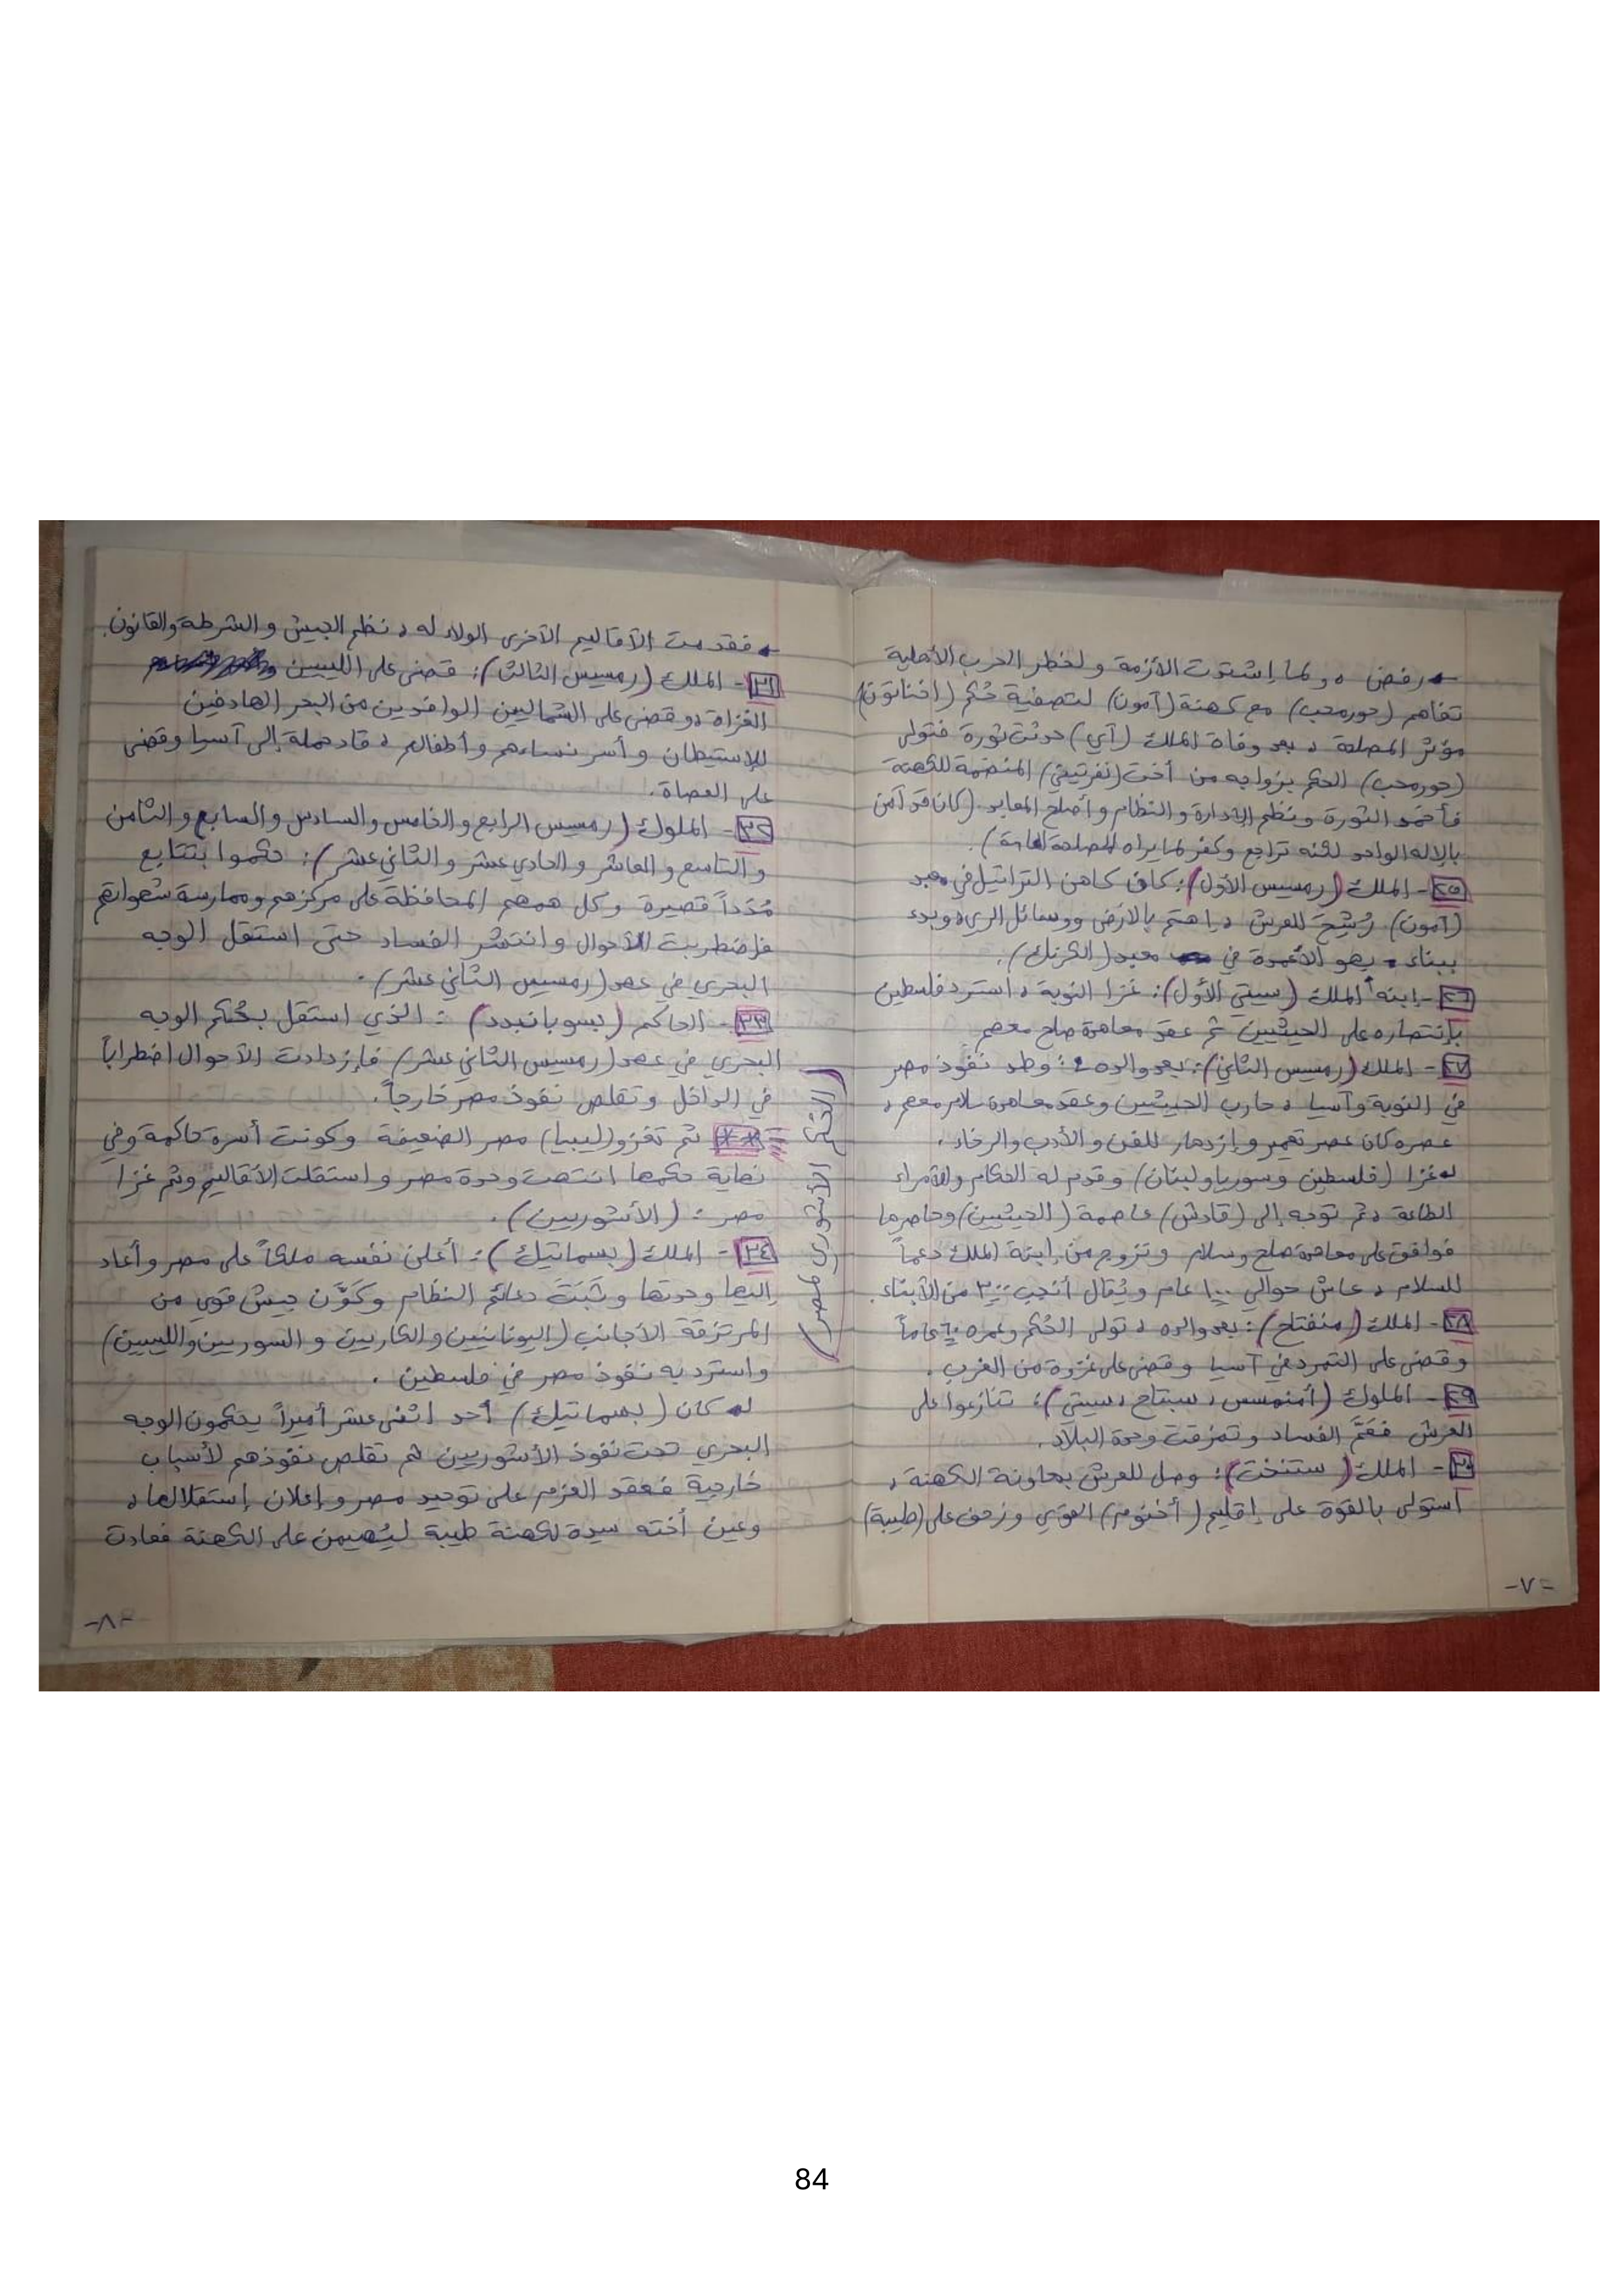 ← رفض ، ولما إشتدت الأزمة ولخطر الحرب الأهلية
تفاهم (حورمحب) مع كهنة (آمون) لتصفية حُكم (اخناتون)
مؤثر المصلحة ، بعد وفاة الملك (آي) حدثت ثورة فتولى
(حورمحب) الحكم بزواجه من أخت (نفرتيتي) المنضمة للكهنة
فأخمد الثورة ونظم الإدارة والنظام وأصلح المعابد. (كان قد آمن
بالإله الواحد لكنه تراجع وكفر لما يراه للمصلحة العامة).
٢٥- الملك (رمسيس الأول): كان كاهن التراتيل في معبد
(آمون) رُشِحَ للعرش ، اهتم بالأرض ووسائل الري، وبدء
ببناء بهو الأعمدة في معبد (الكرنك).
٢٦- إبنه الملك (سيتي الأول): غزا النوبة ، استرد فلسطين
بإنتصاره على الحيثيين ثم عقد معاهدة صلح معهم
٢٧- الملك (رمسيس الثاني): بعد والده : وطد نفوذ مصر
في النوبة وآسيا ، حارب الحيثيين وعقد معاهدة سلام معهم ،
عصره كان عصر تعمير وإزدهار للفن والأدب والرخاء ،
له غزا (فلسطين وسوريا ولبنان) وقدم له الحكام والأمراء
الطاعة ، ثم توجه إلى (قادش) عاصمة (الحيثيين) وحاصرها
فوافق على معاهدة صلح وسلام وتزوج من إبنة الملك دعماً
للسلام ، عاش حوالي ١٠٠ عام ويُقال أنجب ٣٠٠ من الأبناء.
٢٨- الملك (منفتاح): بعد والده ، تولى الحُكم وعمره ٦٠ عاماً
وقضى على التمرد في آسيا وقضى على غزوة من الغرب.
٢٩- الملوك (أمنمسس ، سبتاح ، سيتي): تنازعوا على
العرش فعَمَّ الفساد وتمزقت وحدة البلاد.
٣٠- الملك (ستنخت): وصل للعرش بمعاونة الكهنة ،
استولى بالقوة على إقليم (أخنوم) القوي وزحف على (طيبة)
-٧-
← فقدمت الأقاليم الأخرى الولاء له ، نظم الجيش والشرطة والقانون.
٣١- الملك (رمسيس الثالث): قضى على الليبيين
الغزاة ، وقضى على الشماليين الوافدين من البحر الهادفين
للإستيطان وأسر نساءهم وأطفالهم ، قاد حملة إلى آسيا وقضى
على العصاة.
٣٢- الملوك (رمسيس الرابع والخامس والسادس والسابع والثامن
والتاسع والعاشر والحادي عشر والثاني عشر): حكموا بتتابع
مُدَداً قصيرة وكل همهم المحافظة على مركزهم وممارسة شهواتهم
فإضطربت الأحوال وانتشر الفساد حتى استقل الوجه
البحري في عهد (رمسيس الثاني عشر).
٣٣- الحاكم (بسوبانبدد) : الذي استقل بحُكم الوجه
البحري في عهد (رمسيس الثاني عشر) فإزدادت الأحوال اضطراباً
في الداخل وتقلص نفوذ مصر خارجاً.
** ثم تغزو (ليبيا) مصر الضعيفة وكونت أسرة حاكمة وفي
نهاية حكمها انتهت وحدة مصر واستقلت الأقاليم وثم غزا
مصر : (الأشوريين).
٣٤- الملك (بسماتيك) : أعلن نفسه ملكاً على مصر وأعاد
إليها وحدتها وثَبَتَ دعائم النظام وكَوَّن جيش قوي من
المرتزقة الأجانب (اليونانيين والكاريين والسوريين والليبيين)
واسترد به نفوذ مصر في فلسطين.
له كان (بسماتيك) أحد اثنى عشر أميراً يحكمون الوجه
البحري تحت نفوذ الأشوريين ثم تقلص نفوذهم لأسباب
خارجية فعقد العزم على توحيد مصر وإعلان إستقلالها ،
وعين أخته سيدة لكهنة طيبة ليُهيمن على الكهنة فعادت
-٨-
الأشوري لمصر)
84